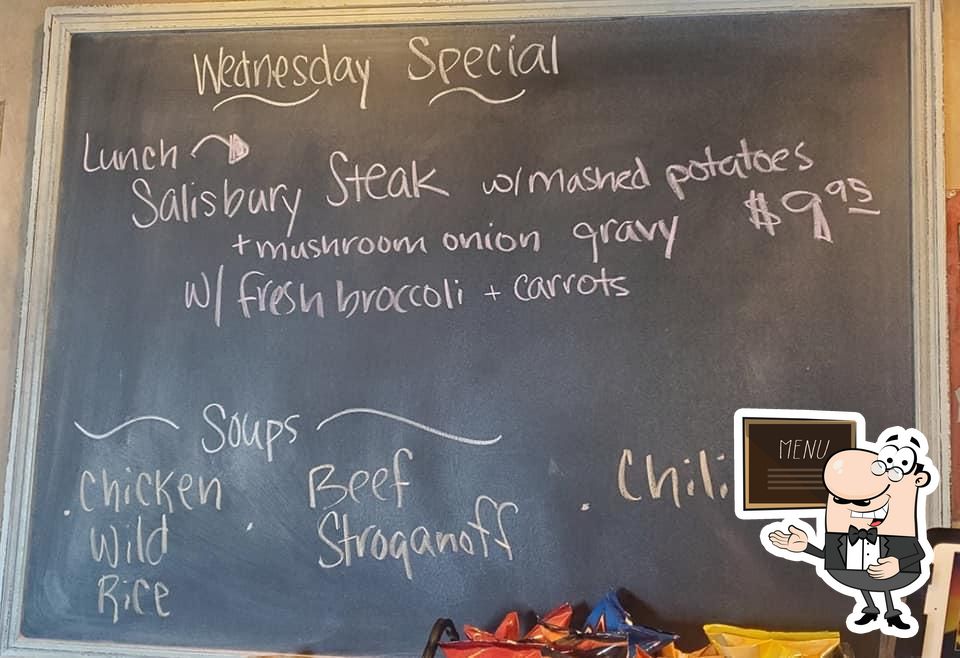 Wednesday Special
Lunch
Salisbury Steak w/ mashed potatoes
+ mushroom onion gravy $9.95
w/ fresh broccoli + carrots
Soups
. Chicken Wild Rice
. Beef Stroganoff
. Chili
MENU